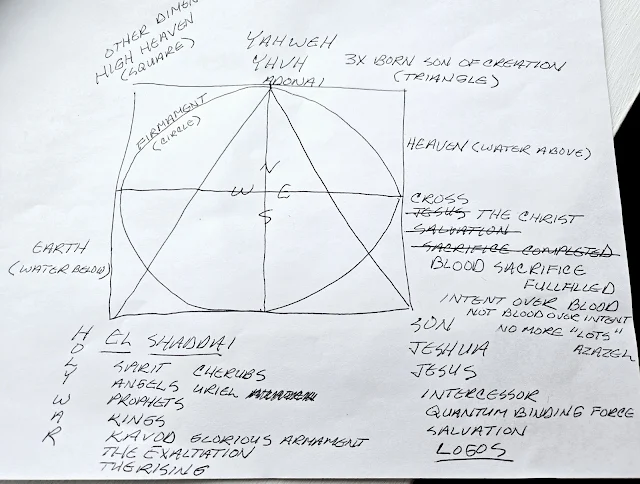 OTHER DIMEN
HIGH HEAVEN
(SQUARE)
YAHWEH
YHVH
ADONAI
3X BORN SON OF CREATION
(TRIANGLE)
FIRMAMENT
(CIRCLE)
HEAVEN (WATER ABOVE)
N
W E
S
CROSS
JESUS THE CHRIST
SALVATION
SACRIFICE COMPLETED
BLOOD SACRIFICE
FULLFILLED
INTENT OVER BLOOD
NOT BLOOD OVER INTENT
NO MORE "LOTS"
AZAZEL
EARTH
(WATER BELOW)
HOLY WAR
EL SHADDAI
SPIRIT CHERUBS
ANGELS URIEL
PROPHETS
KINGS
KAVOD GLORIOUS ARMAMENT
THE EXALTATION
THE RISING
SON
JESHUA
JESUS
INTERCESSOR
QUANTUM BINDING FORCE
SALVATION
LOGOS